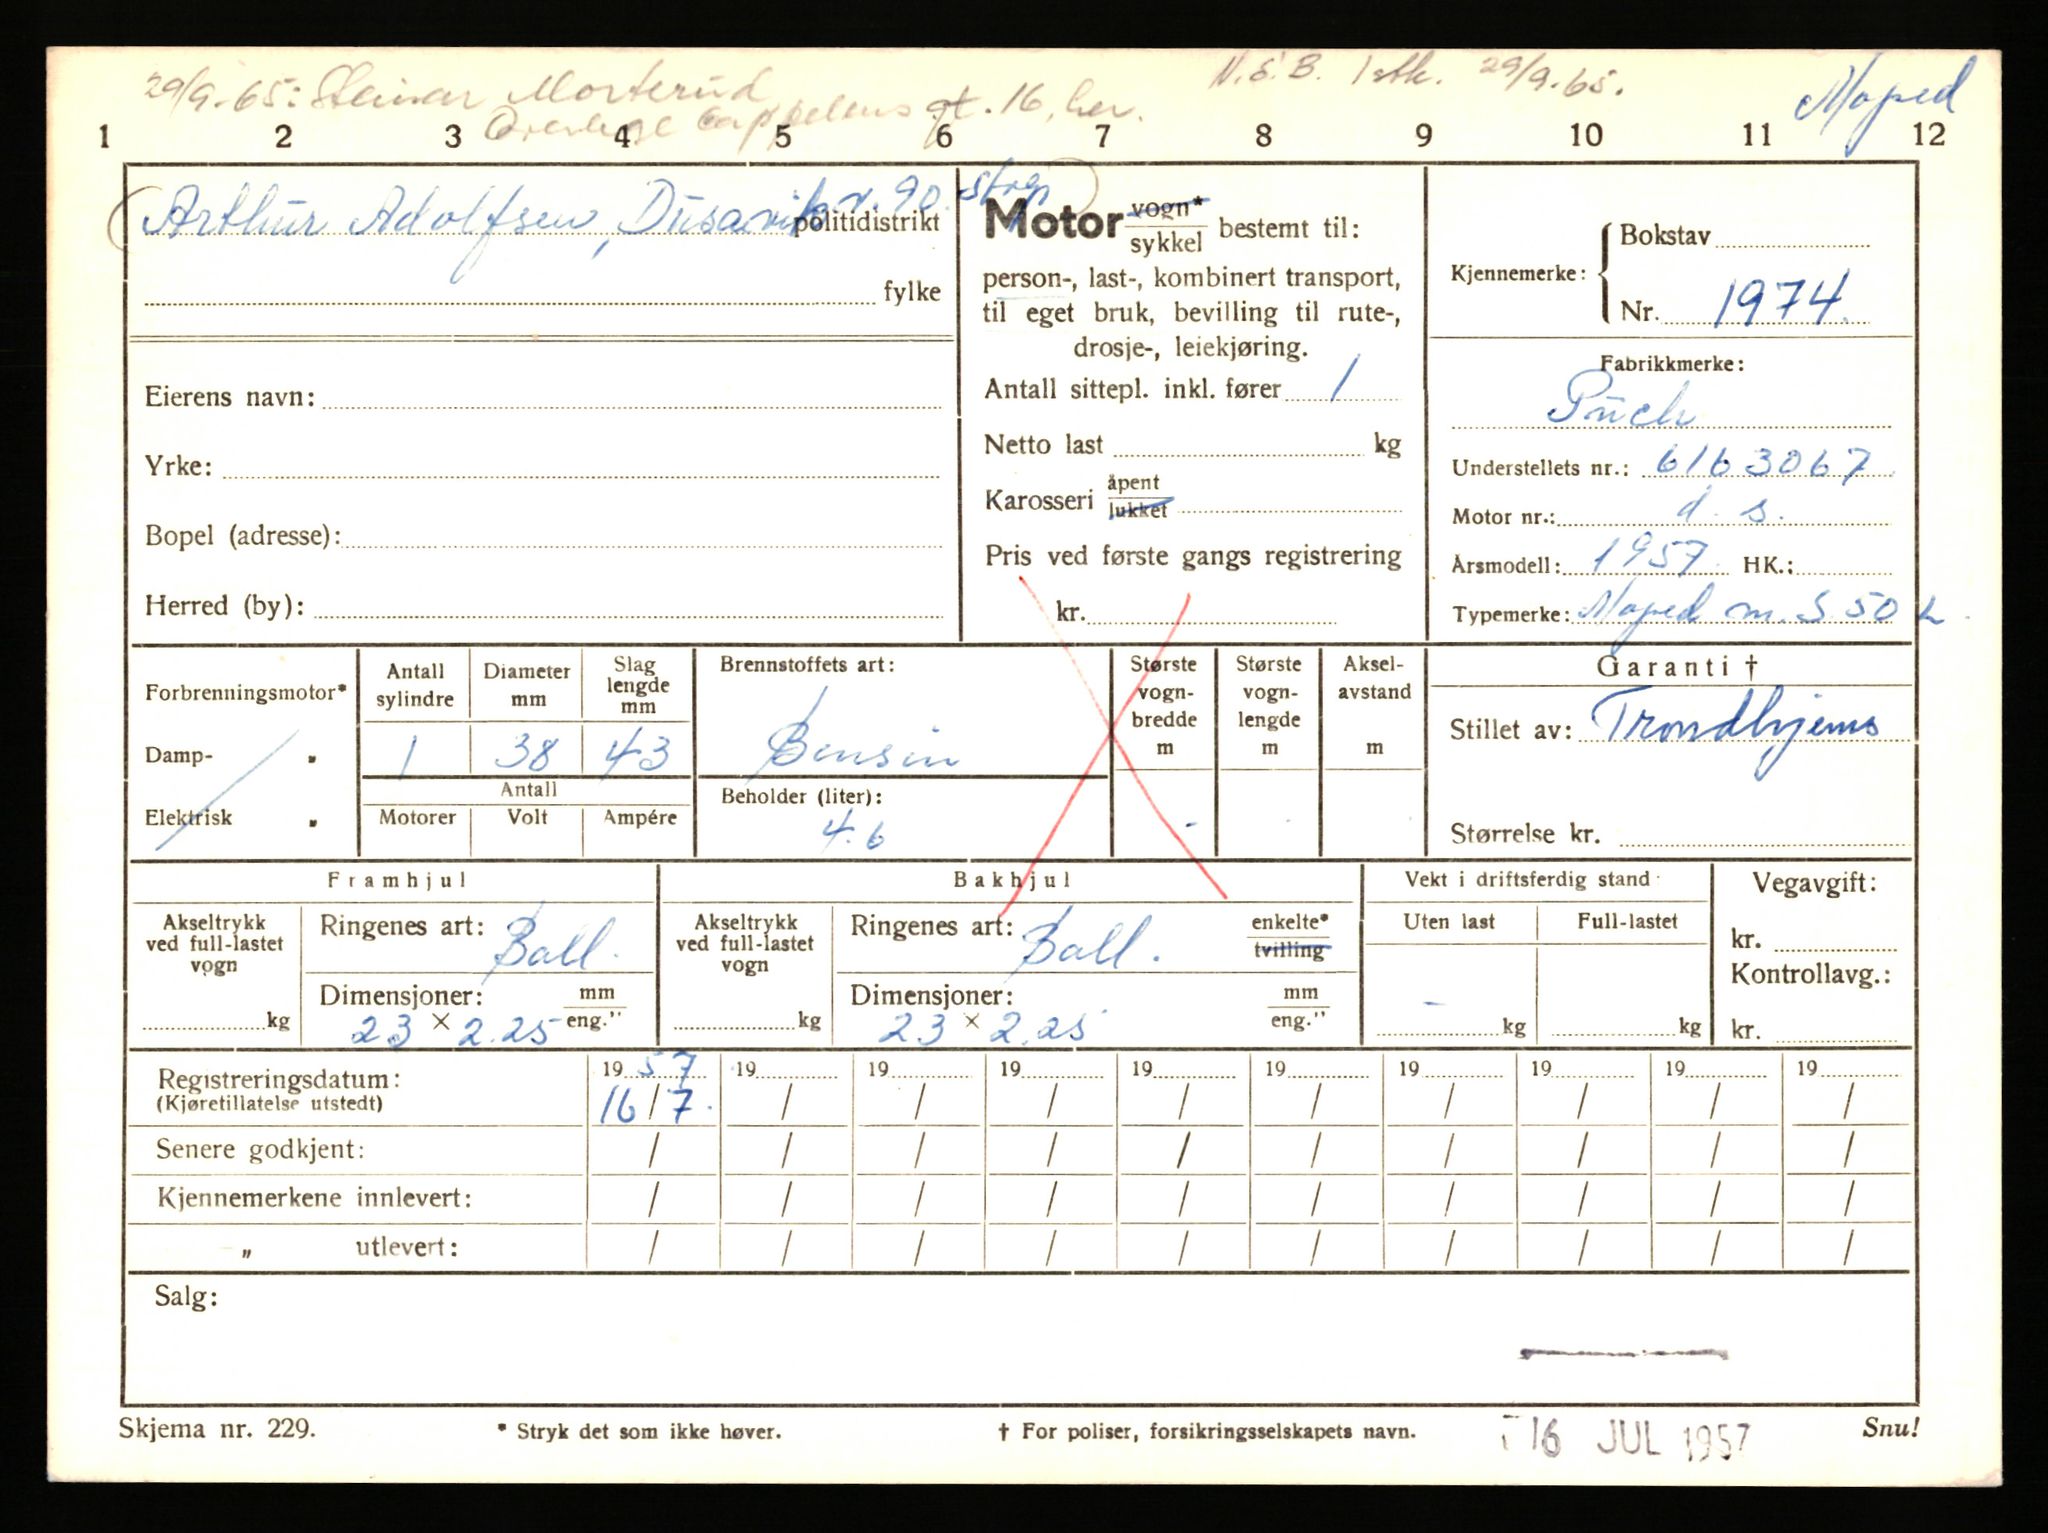 29/9-65: Steinar Morterud N.E.B. 1 stk. 29/9.65. Moped
Cappelens gt. 16, her.
1 2 3 4 5 6 7 8 9 10 11 12
(Arthur Adolfsen, Dusavik v. 90. Strgn)
politidistrikt
fylke
Eierens navn:
Yrke:
Bopel (adresse):
Herred (by):
Motor vogn* / sykkel bestemt til:
person-, last-, kombinert transport,
til eget bruk, bevilling til rute-,
drosje-, leiekjøring.
Antall sittepl. inkl. fører 1
Netto last kg
Karosseri åpent / lukket
Pris ved første gangs registrering
kr.
Kjennemerke: { Bokstav
Nr. 1974.
Fabrikkmerke:
Puch
Understellets nr.: 6163067
Motor nr.: d. s.
Årsmodell: 1957. HK.:
Typemerke: Moped m. S. 50 L
Forbrenningsmotor*
Damp- „
Elektrisk „
Antall sylindre
1
Diameter mm
38
Slag lengde mm
43
Antall
Motorer Volt Ampére
Brennstoffets art:
Bensin
Beholder (liter):
4.6
Største vogn-bredde m
Største vogn-lengde m
Aksel-avstand m
Garanti †
Stillet av: Trondhjems
Størrelse kr.
Framhjul
Akseltrykk ved full-lastet vogn
kg
Ringenes art: Ball.
Dimensjoner: mm / eng."
23 × 2.25
Bakhjul
Akseltrykk ved full-lastet vogn
kg
Ringenes art: Ball. enkelte* / tvilling
Dimensjoner: mm / eng."
23 × 2.25
Vekt i driftsferdig stand
Uten last Full-lastet
- kg kg
Vegavgift:
kr.
Kontrollavg.:
kr.
Registreringsdatum: 1957 19 19 19 19 19 19 19 19 19
(Kjøretillatelse utstedt) 16/7. / / / / / / / / /
Senere godkjent: / / / / / / / / / /
Kjennemerkene innlevert: / / / / / / / / / /
„ utlevert: / / / / / / / / / /
Salg:
Skjema nr. 229. * Stryk det som ikke høver. † For poliser, forsikringsselskapets navn. 16 JUL 1957 Snu!